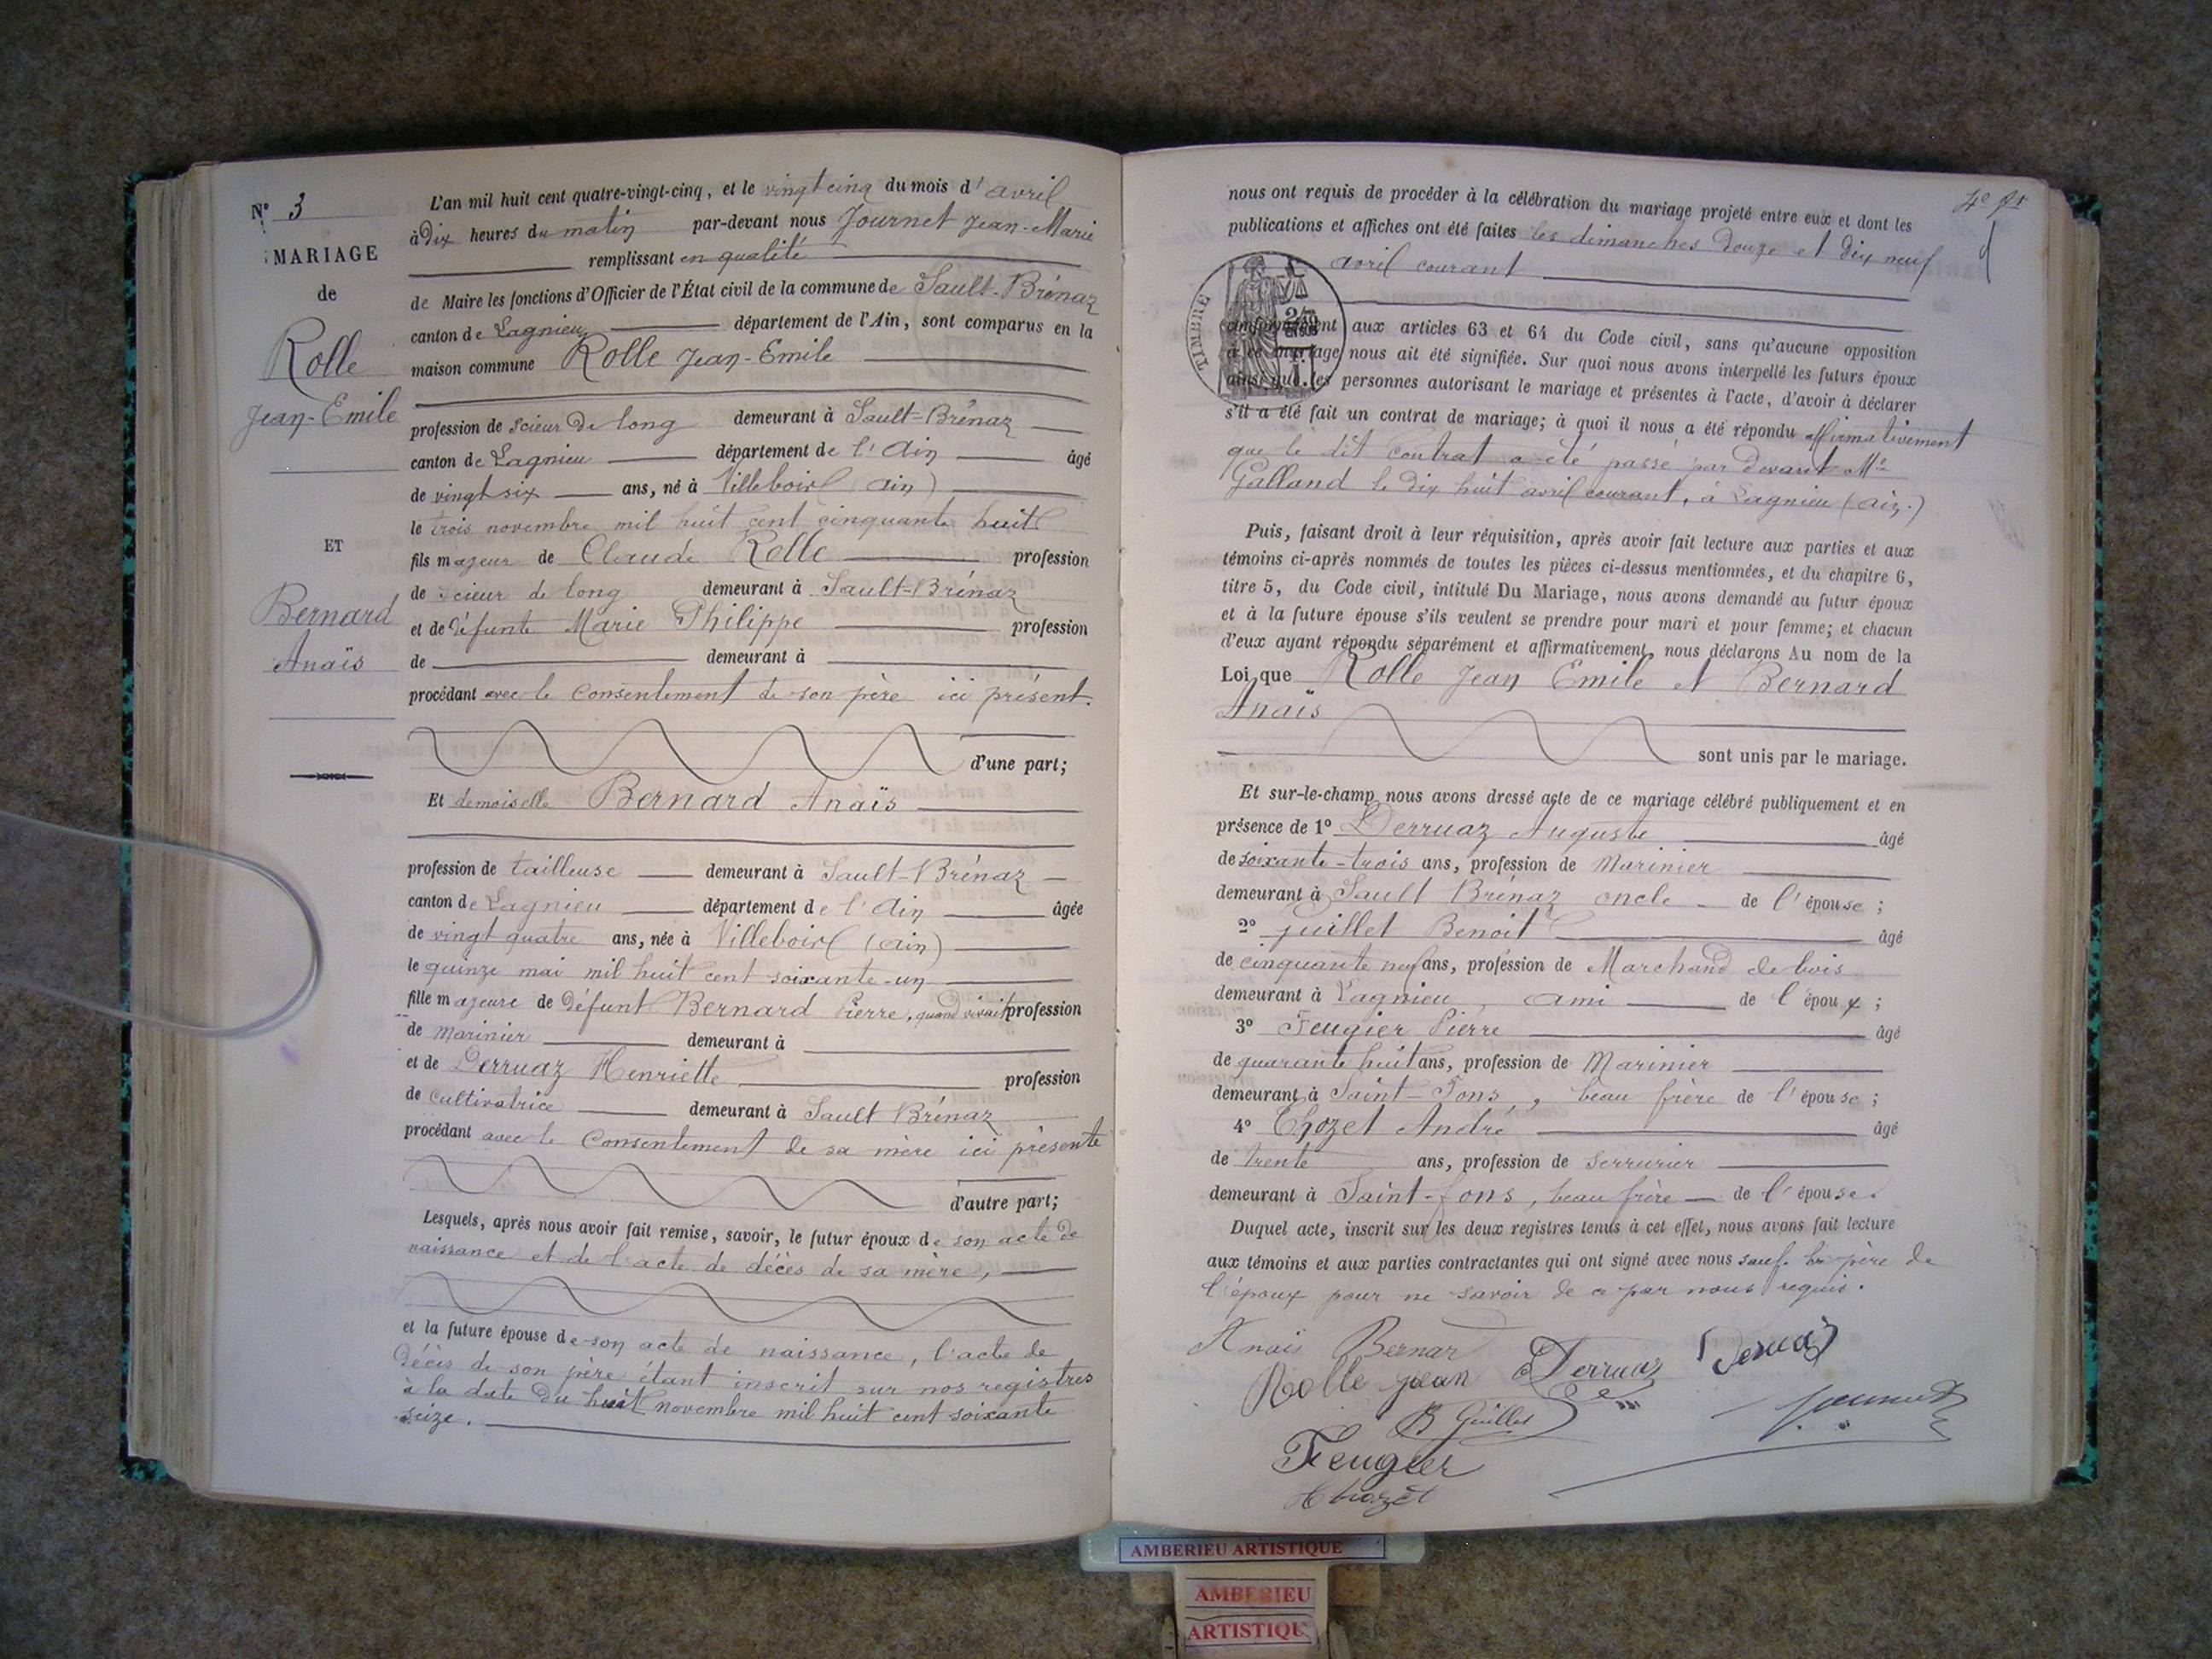 N° 3
MARIAGE
de
Rolle
Jean-Emile
ET
Bernard
Anaïs
L'an mil huit cent quatre-vingt-cinq, et le vingt cinq du mois d'avril
à Dix heures du matin par-devant nous Journet Jean-Marie
remplissant en qualité
de Maire les fonctions d'Officier de l'État civil de la commune de Sault-Brénaz
canton de Lagnieu département de l'Ain, sont comparus en la
maison commune Rolle Jean-Emile
profession de scieur de long demeurant à Sault-Brénaz
canton de Lagnieu département de l'Ain âgé
de vingt six ans, né à Villebois (ain)
le trois novembre mil huit cent cinquante huit
fils majeur de Claude Rolle profession
de scieur de long demeurant à Sault-Brénaz
et de défunte Marie Philippe profession
de demeurant à
procédant avec le consentement de son père ici présent.
d'une part;
Et demoiselle Bernard Anaïs
profession de tailleuse demeurant à Sault-Brénaz
canton de Lagnieu département de l'Ain âgée
de vingt quatre ans, née à Villebois (ain)
le quinze mai mil huit cent soixante-un
fille majeure de défunt Bernard Pierre, quand vivait profession
de marinier demeurant à
et de Derruaz Henriette profession
de cultivatrice demeurant à Sault Brénaz
procédant avec le consentement de sa mère ici présente
d'autre part;
Lesquels, après nous avoir fait remise, savoir, le futur époux de son acte de
naissance et de l'acte de décès de sa mère,
et la future épouse de son acte de naissance, l'acte de
décès de son père étant inscrit sur nos registres
à la date du huit novembre mil huit cent soixante
seize.
nous ont requis de procéder à la célébration du mariage projeté entre eux et dont les
publications et affiches ont été faites les dimanches douze et dix neuf
avril courant
TIMBRE
conformément aux articles 63 et 64 du Code civil, sans qu'aucune opposition
à ce mariage nous ait été signifiée. Sur quoi nous avons interpellé les futurs époux
ainsi que les personnes autorisant le mariage et présentes à l'acte, d'avoir à déclarer
s'il a été fait un contrat de mariage; à quoi il nous a été répondu affirmativement
que le dit contrat a été passé par devant Me
Galland le dix huit avril courant, à Lagnieu (ain.)
Puis, faisant droit à leur réquisition, après avoir fait lecture aux parties et aux
témoins ci-après nommés de toutes les pièces ci-dessus mentionnées, et du chapitre 6,
titre 5, du Code civil, intitulé Du Mariage, nous avons demandé au futur époux
et à la future épouse s'ils veulent se prendre pour mari et pour femme; et chacun
d'eux ayant répondu séparément et affirmativement, nous déclarons Au nom de la
Loi que Rolle Jean Emile et Bernard
Anaïs
sont unis par le mariage.
Et sur-le-champ nous avons dressé acte de ce mariage célébré publiquement et en
présence de 1° Derruaz Auguste âgé
de soixante-trois ans, profession de Marinier
demeurant à Sault Brénaz oncle de l'épouse;
2° juillet Benoit âgé
de cinquante neuf ans, profession de Marchand de bois
demeurant à Lagnieu, ami de l'époux;
3° Feugier Pierre âgé
de quarante huit ans, profession de Marinier
demeurant à Saint-Fons, beau frère de l'épouse;
4° Chozet André âgé
de trente ans, profession de serrurier
demeurant à Saint-fons, beau frère de l'épouse.
Duquel acte, inscrit sur les deux registres tenus à cet effet, nous avons fait lecture
aux témoins et aux parties contractantes qui ont signé avec nous sauf le père de
l'époux pour ne savoir de ce par nous requis.
Anaïs Bernar
Rolle jean Derruaz
Feugier
AMBERIEU ARTISTIQUE
AMBERIEU
ARTISTIQU